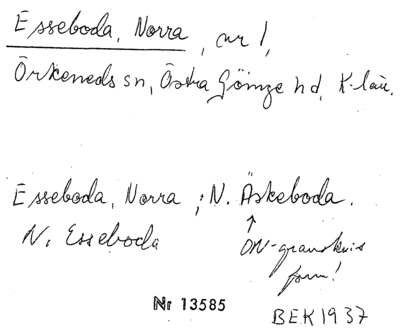 Esseboda, Norra, nr 1,
Örkeneds sn, Östra Göinge hd, K-län.
Esseboda, Norra ; N. Äskeboda.
N. Esseboda
↑
ON-gransknis
form!
Nr 13585
BEK 1937